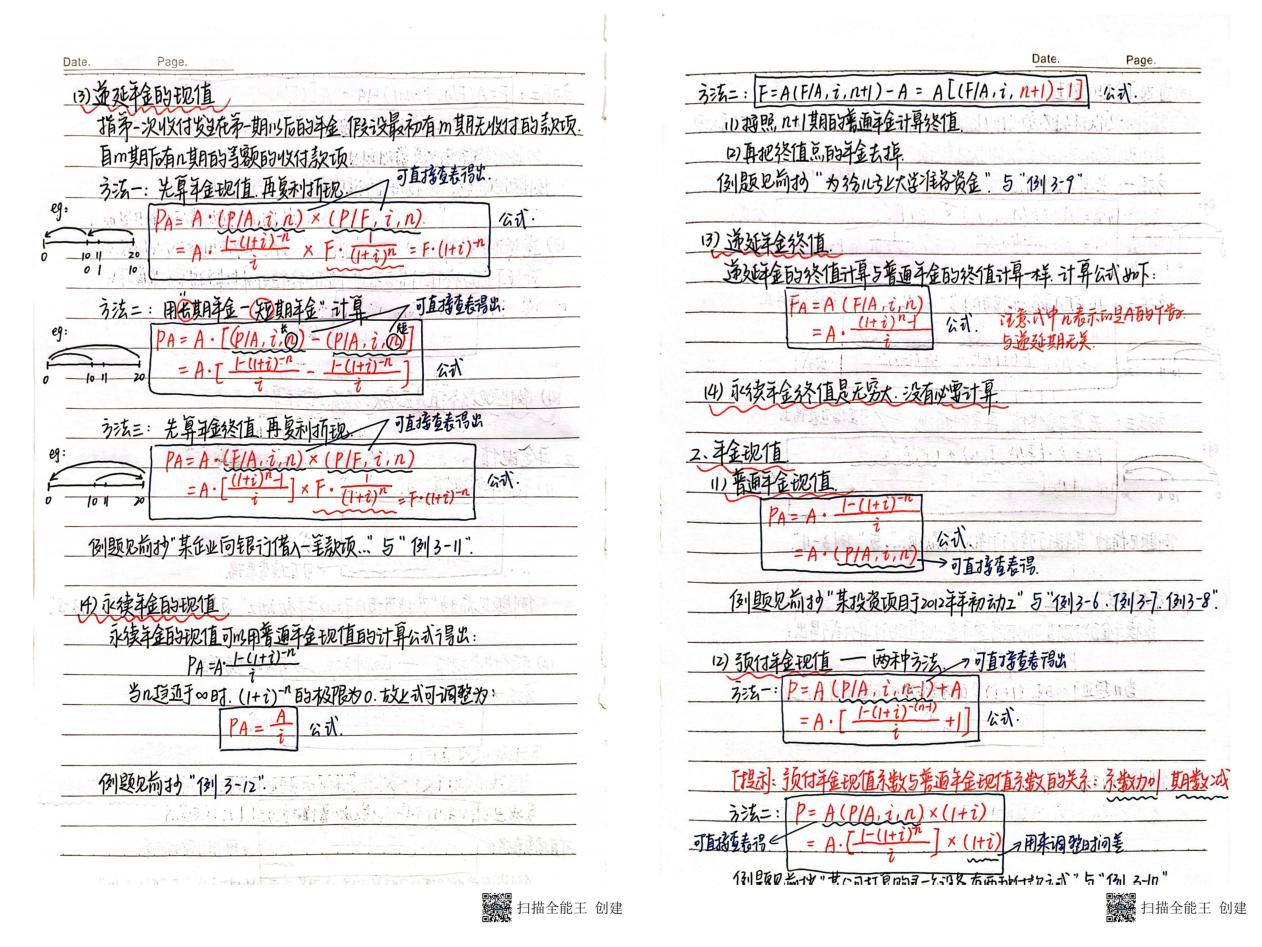 Date. Page.
(3) 递延年金的现值
指第一次收付发生在第一期以后的年金.假设最初有m期无收付的款项.
自m期后有n期的等额的收付款项.
方法一: 先算年金现值.再复利折现.
可直接查表得出.
eg:
0 10 11 20
0 1 10
PA = A · (P/A, i, n) × (P/F, i, n)
= A · \frac{1-(1+i)^{-n}}{i} × F · \frac{1}{(1+i)^n} = F·(1+i)^{-n}
公式.
方法二: 用"长期年金-短期年金"计算.
可直接查表得出.
eg:
0 10 11 20
PA = A · [(P/A, i, n长) - (P/A, i, n短)]
= A·[\frac{1-(1+i)^{-n}}{i} - \frac{1-(1+i)^{-n}}{i}]
公式
方法三: 先算年金终值.再复利折现.
可直接查表得出
eg:
0 10 11 20
PA = A · (F/A, i, n) × (P/F, i, n)
= A·[\frac{(1+i)^n-1}{i}] × F · \frac{1}{(1+i)^n} = F·(1+i)^{-n}
公式.
例题见前抄"某企业向银行借入一笔款项…"与"例3-11".
(4) 永续年金的现值
永续年金的现值可以用普通年金现值的计算公式得出:
PA=A·\frac{1-(1+i)^{-n}}{i}
当n趋近于∞时. (1+i)^{-n}的极限为0.故上式可调整为:
PA = \frac{A}{i}
公式.
例题见前抄"例3-12".
扫描全能王 创建
Date. Page.
方法二: F=A(F/A, i, n+1) - A = A[(F/A, i, n+1)-1] 公式.
(1)按照n+1期的普通年金计算终值.
(2)再把终值点的年金去掉.
例题见前抄"为给儿子上大学准备资金". 与"例3-9"
(3) 递延年金终值.
递延年金的终值计算与普通年金的终值计算一样.计算公式如下:
FA = A (F/A, i, n)
= A · \frac{(1+i)^n-1}{i}
公式. 注意式中n表示的是A的个数.
与递延期无关.
(4) 永续年金终值是无穷大.没有必要计算.
2、年金现值
(1) 普通年金现值.
PA = A · \frac{1-(1+i)^{-n}}{i}
= A · (P/A, i, n)
公式.
可直接查表得.
例题见前抄"某投资项目于2012年年初动工"与"例3-6.例3-7.例3-8".
(2) 预付年金现值 — 两种方法. 可直接查表得出
方法一: P = A (P/A, i, n-1) + A
= A·[\frac{1-(1+i)^{-(n-1)}}{i} + 1] 公式.
[提示]: 预付年金现值系数与普通年金现值系数的关系: 系数加1,期数减1
方法二: P = A(P/A, i, n) × (1+i)
可直接查表得 = A·[\frac{1-(1+i)^{-n}}{i}] × (1+i) 用来调整时间差
例题见前抄"某公司打算购买一台设备有两种付款方式"与"例3-10"
扫描全能王 创建